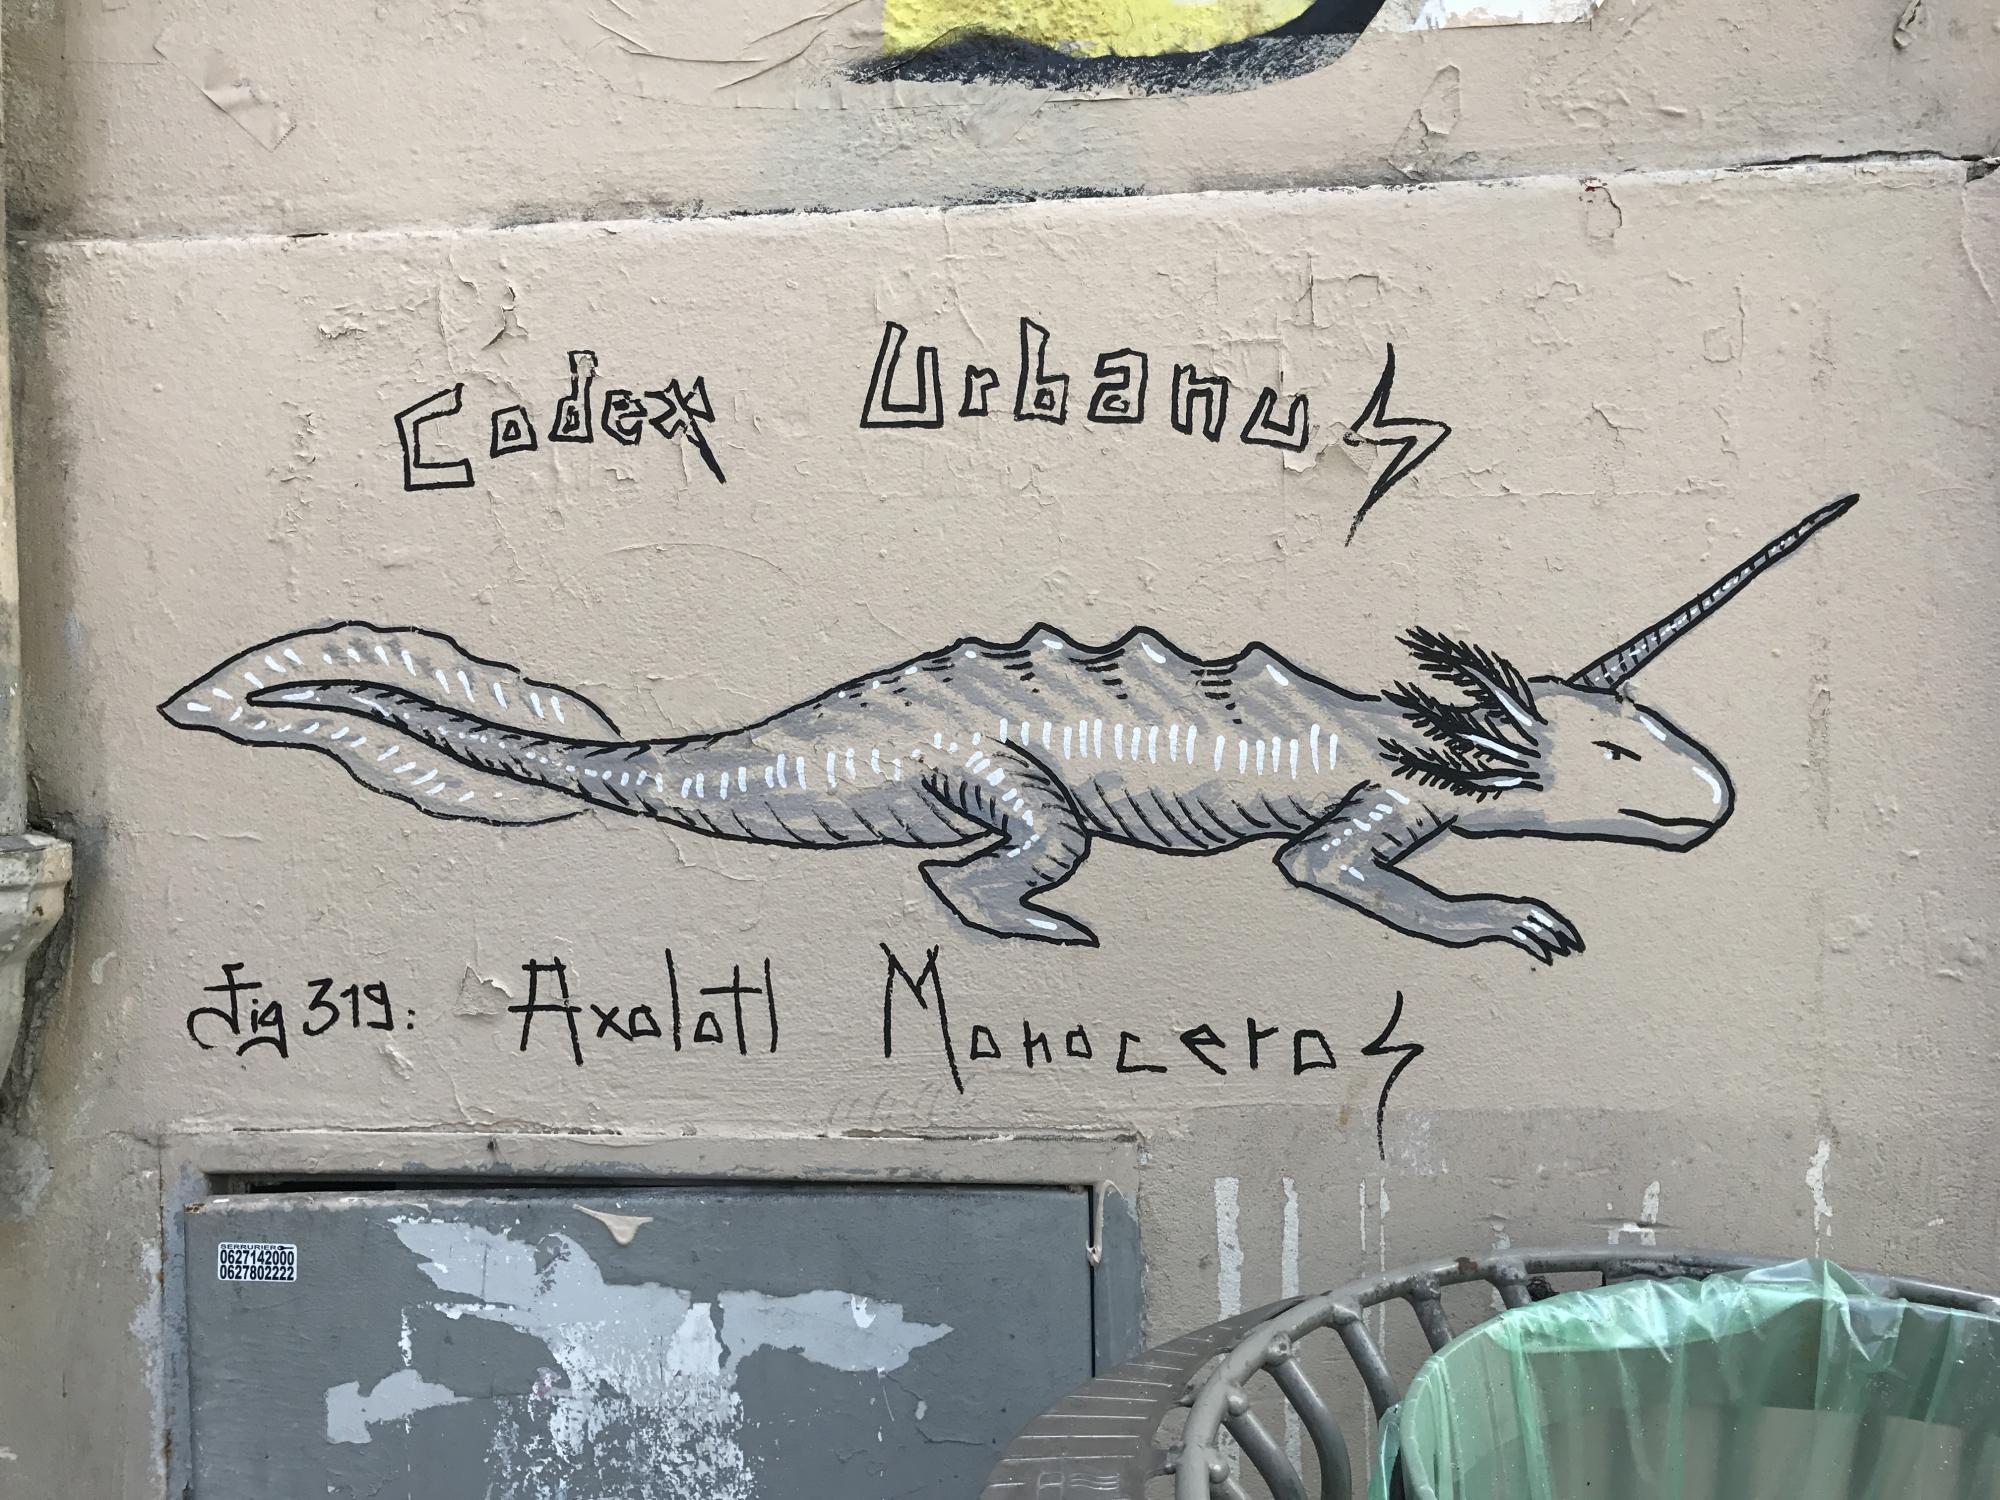 Codex Urbanus
fig 319: Axolotl Monoceros
SERRURIER
0627142000
0627802222